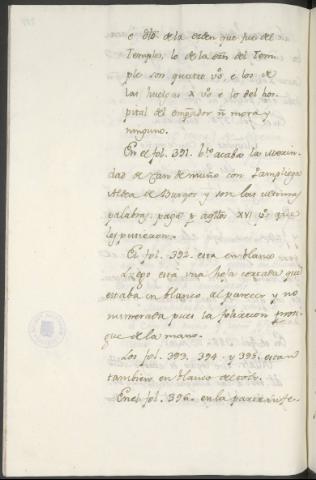 e dho de la orden que fue del
Temple, lo de la orn del Tem-
ple son quatro vos, e los de
las huelgas x vos e lo del hos-
pital del emperador ñ mora y
ninguno.
En el fol. 391. bto acaba la Merin-
dad de Can de muño con Pampliega
Aldea de Burgos y son las ultimas
palabras: pagã y agtos XVI que
les pusieron.
El fol. 392. esta en blanco
Luego está una hoja cortada que
estaba en blanco al parecer y no
numerada pues la foliacion prosi-
gue de la mano.
Los fol. 393. 394. y 395. estan
tambien en blanco del todo.
En el fol. 396. en la parte infe-